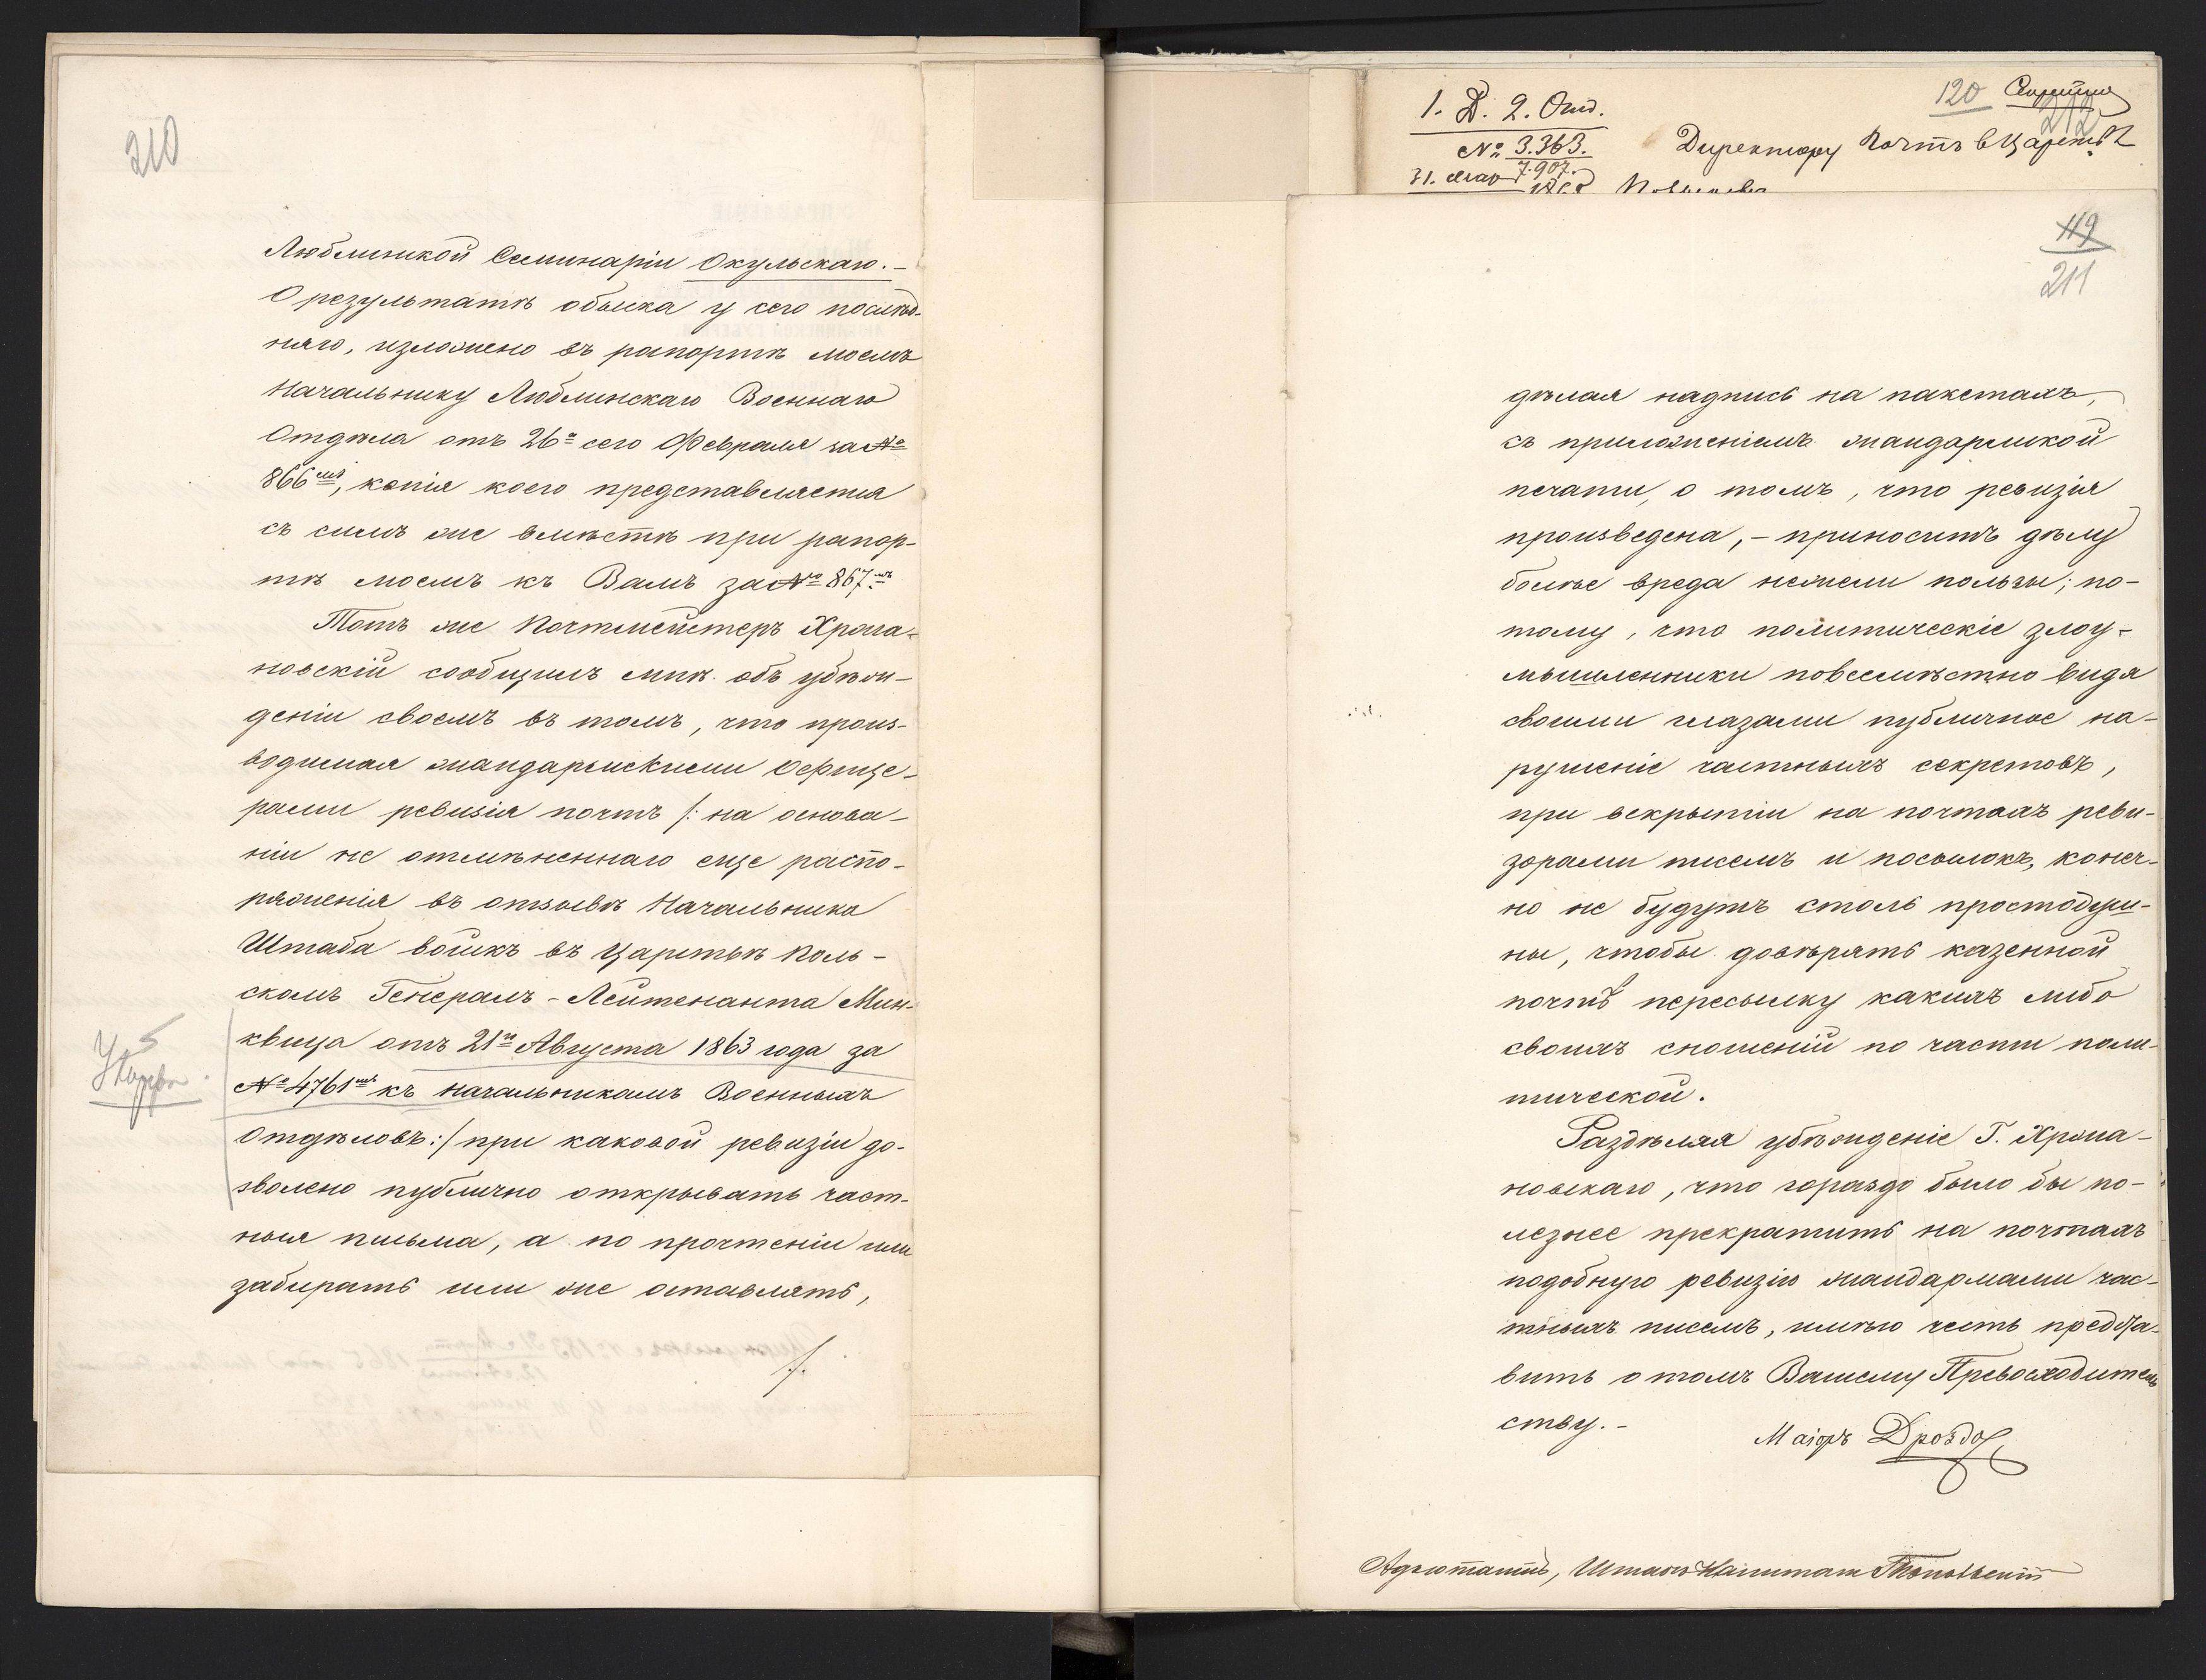 210
Люблинской Семинаріи Окульскаго.-
О результатѣ обыска у сего послѣд-
няго, изложено въ рапортѣ моемъ
Начальнику Люблинскаго Военнаго
Отдѣла отъ 26го сего Февраля за №
866мъ, копія коего представляется
съ симъ же вмѣстѣ при рапор-
тѣ моемъ къ Вамъ за № 867мъ
Тотъ же Почтмейстеръ Хржа-
новскій сообщилъ мнѣ объ убѣж-
деніи своемъ въ томъ, что произ-
водимая жандармскими Офице-
рами ревизія почтъ /: на основа-
ніи не отмѣненнаго еще распо-
ряженія въ отзывѣ Начальника
Штаба войскъ въ Царствѣ Поль-
скомъ Генералъ-Лейтенанта Мин-
квица отъ 21го Августа 1863 года за
№ 4761мъ къ Начальникамъ Военныхъ
Отдѣловъ:/ при каковой ревизіи до-
зволено публично открывать част-
ныя письма, а по прочтеніи или
забирать или же оставлять,
1. Д. 2. Отд.
№ 3.363.
7.907.
31. Мая
120
212
Директору Почтъ в Царствѣ
119
211
дѣлая надпись на пакетахъ,
съ приложеніемъ жандармской
печати, о томъ, что ревизія
произведена,- приноситъ дѣлу
болѣе вреда нежели пользы; по-
тому, что политическіе злоу-
мышленники повсемѣстно видя
своими глазами публичное на-
рушеніе частныхъ секретовъ,
при вскрытіи на почтахъ реви-
зорами писемъ и посылокъ, конеч-
но не будутъ столь простодуш-
ны, чтобы довѣрять казенной
почтѣ пересылку какихъ либо
своихъ сношеній по части поли-
тической.
Раздѣляя убѣжденіе Г. Хржа-
новскаго, что гораздо было бы по-
лезнее прекратить на почтахъ
подобную ревизію жандармами час-
тныхъ писемъ, имѣю честь предста-
вить о томъ Вашему Превосходитель
ству.-
Маіоръ Дроздов
Адъютантъ, Штабсъ-Капитанъ